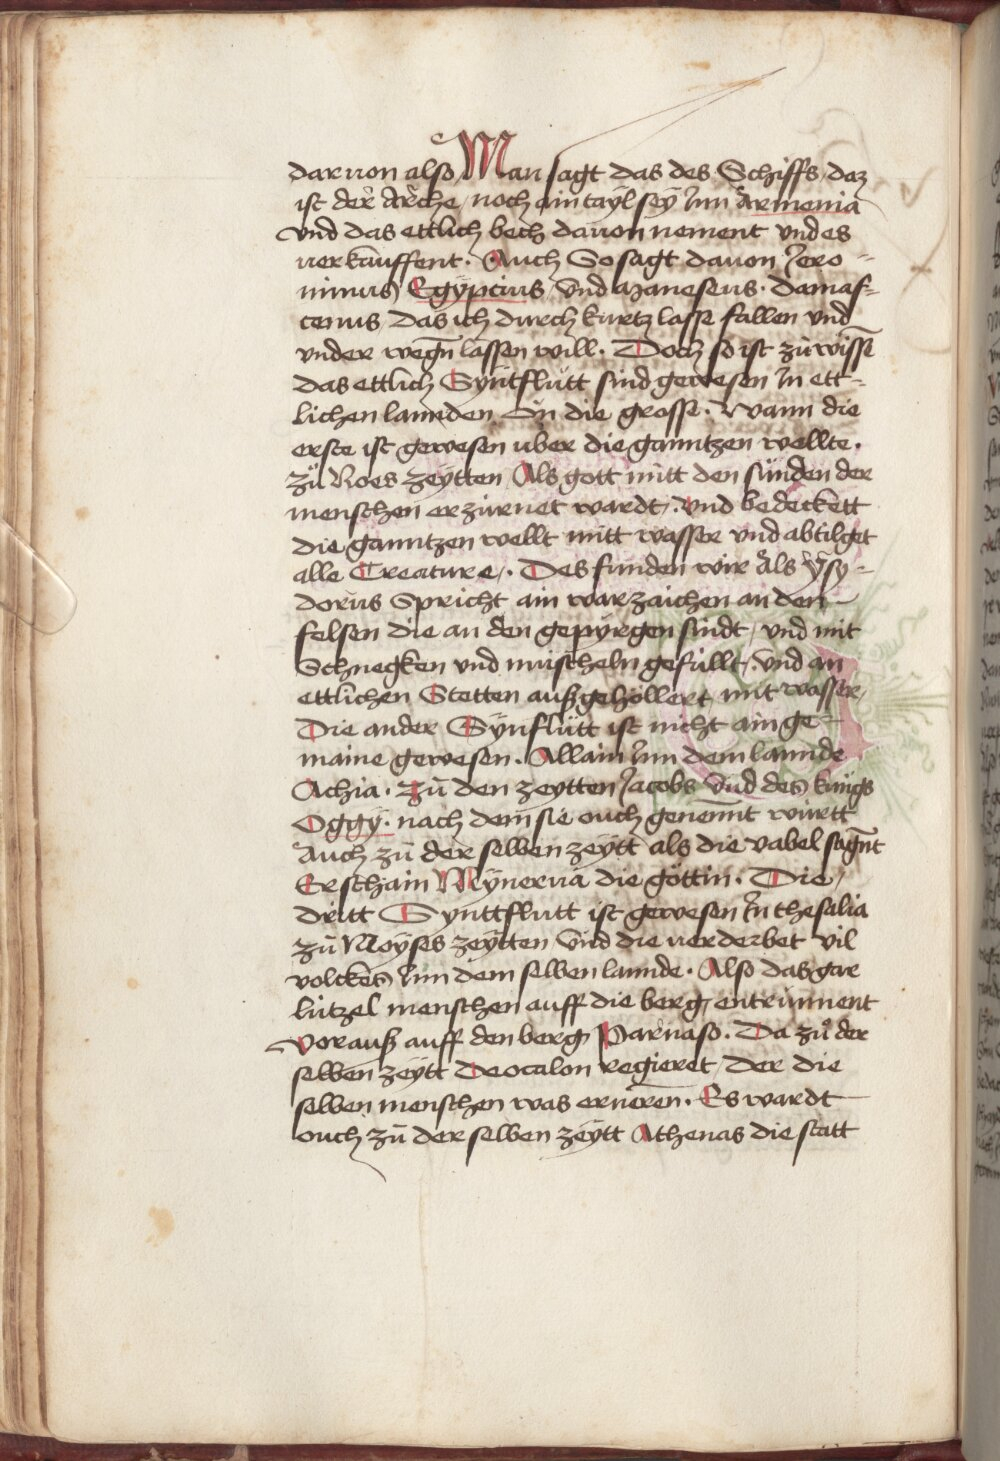 daruon also, Man sagt das des Schiffs, daz
ist der Arche, noch ain tayl sey Inn Armenia
vnd das ettlich bech dauon nement vnd es
uerkauffent. Auch So sagt dauon Jero-
nimus Egyptius, vnd Maneseus. damas-
cenus das ich durch kurtz lasse fallen vnd
vnder wegn lassen will. Doch so ist zů wissē
das ettlich Syntflutt sind gewesen In ett-
lichen lannden On die grosse. Wann die
erste ist gewesen uber die ganntzen wellte.
zů Noes zeytten, Als gott mitt den sünden der
menschen erzürnet wardt, vnd bedeckett
die ganntzen wellt mitt wasser vnd abtilget
alle Creature. Des funden wir Als Ysy-
dorus Spricht ain warzaichen an den
felsen die an den gepyrgen sindt, vnd mit
Schnegken vnd muscheln gefüllt, vnd an
ettlichen Stetten außgehöllert mit wasser,
Die ander Synflutt ist nicht ain ge-
maine gewesen. Allain Inn dem lannde
Achia. zů den zeytten Jacobs vnd des künigs
Oggy. nach dem sie ouch genennt württ
Auch zů der selben zeytt als die vabel sagnt
Erschain Mynerua die göttin. Die
dritt Synttflutt ist gewesen In thesalia
zů Moyses zeytten vnd die uerderbet vil
volckes Inn dem selben lannde. Also das gar
lützel menschen auff die berg, entrunnent
vorauß auff den berg Parnaso. Da zů der
selben zeytt Deocalon regieret, der die
selben menschen was erneren. Es wardt
ouch zů der selben zeytt Athenas die statt